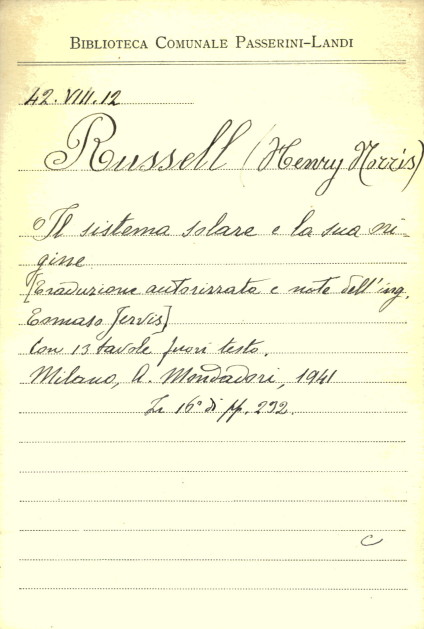 BIBLIOTECA COMUNALE PASSERINI-LANDI
42.VIII.12
Russell (Henry Norris)
Il sistema solare e la sua ori-
gine
[Traduzione autorizzata e note dell'ing.
Tomaso Jervis]
Con 13 tavole fuori testo.
Milano, A. Mondadori, 1941
In 16° di pp. 292.
C